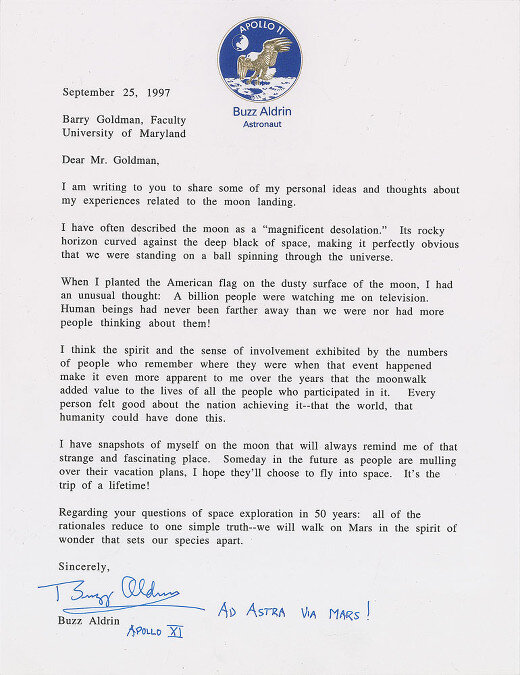 APOLLO 11
Buzz Aldrin
Astronaut
September 25, 1997
Barry Goldman, Faculty
University of Maryland
Dear Mr. Goldman,
I am writing to you to share some of my personal ideas and thoughts about
my experiences related to the moon landing.
I have often described the moon as a “magnificent desolation.” Its rocky
horizon curved against the deep black of space, making it perfectly obvious
that we were standing on a ball spinning through the universe.
When I planted the American flag on the dusty surface of the moon, I had
an unusual thought: A billion people were watching me on television.
Human beings had never been farther away than we were nor had more
people thinking about them!
I think the spirit and the sense of involvement exhibited by the numbers
of people who remember where they were when that event happened
make it even more apparent to me over the years that the moonwalk
added value to the lives of all the people who participated in it. Every
person felt good about the nation achieving it--that the world, that
humanity could have done this.
I have snapshots of myself on the moon that will always remind me of that
strange and fascinating place. Someday in the future as people are mulling
over their vacation plans, I hope they'll choose to fly into space. It's the
trip of a lifetime!
Regarding your questions of space exploration in 50 years: all of the
rationales reduce to one simple truth--we will walk on Mars in the spirit of
wonder that sets our species apart.
Sincerely,
Buzz Aldrin
AD ASTRA VIA MARS!
Buzz Aldrin
APOLLO XI